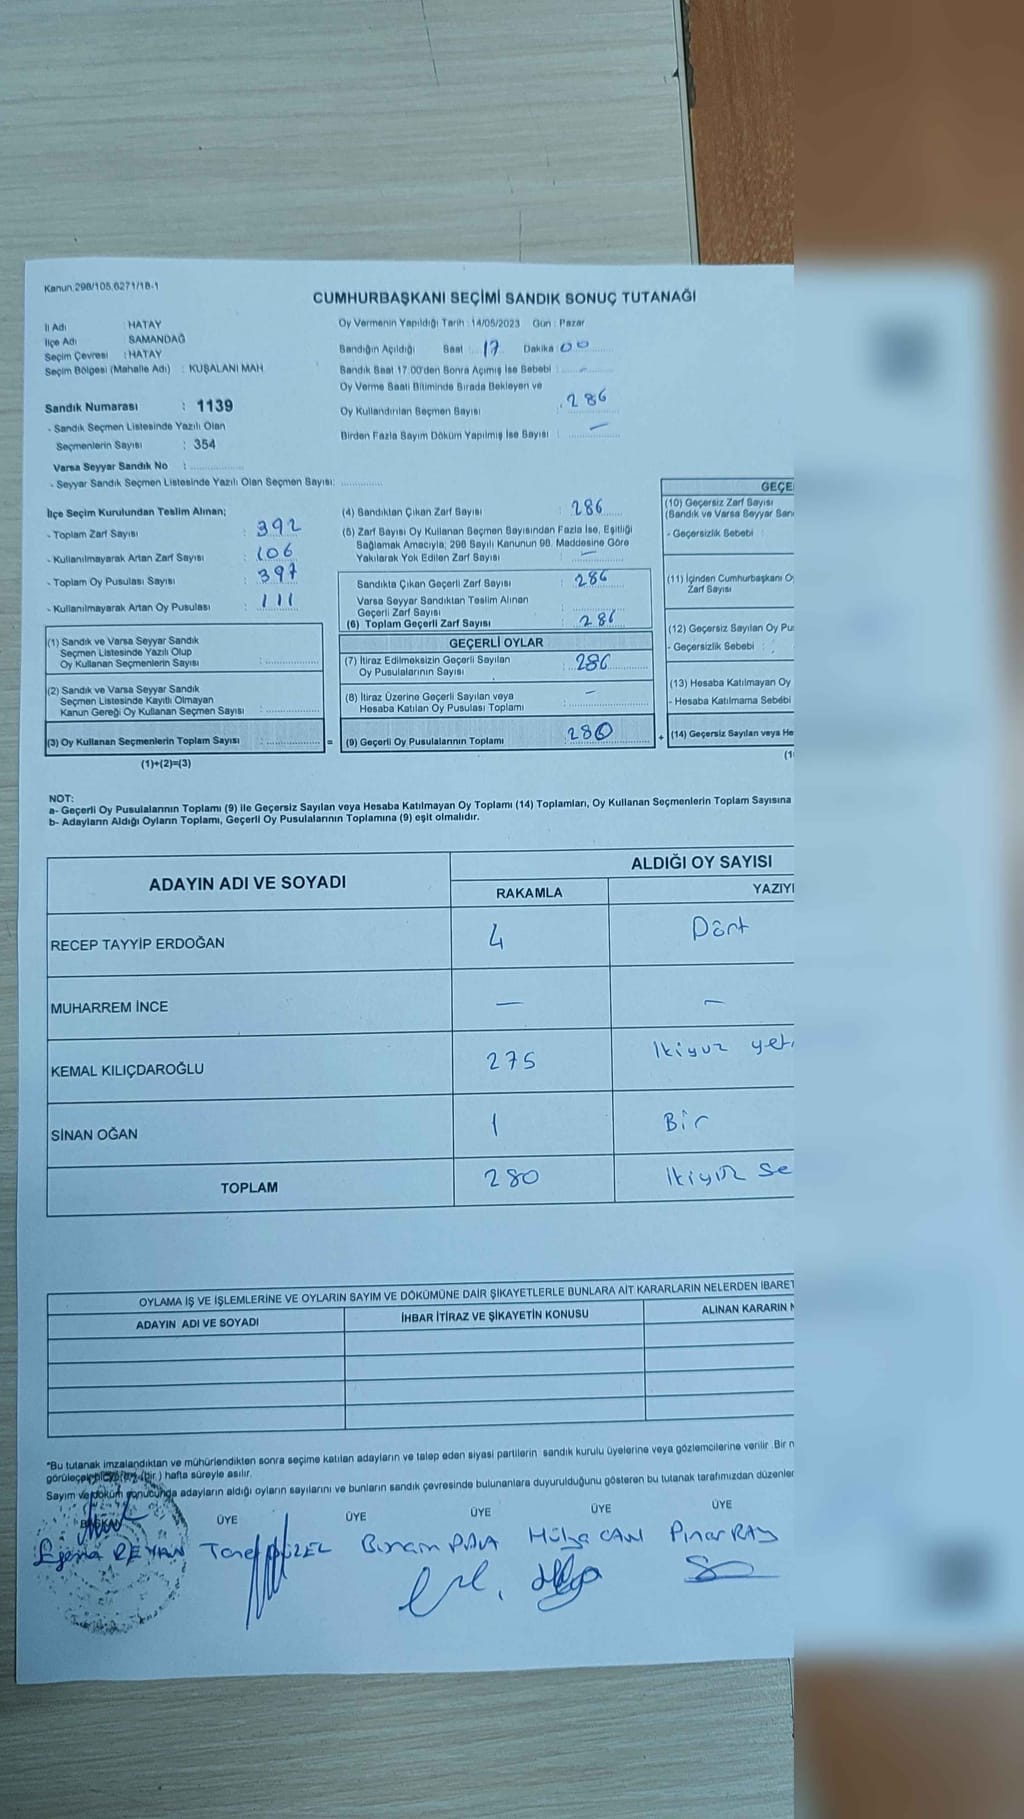 Kanun.298/105,6271/18-1
CUMHURBAŞKANI SEÇİMİ SANDIK SONUÇ TUTANAĞI
İl Adı : HATAY
İlçe Adı : SAMANDAĞ
Seçim Çevresi : HATAY
Seçim Bölgesi (Mahalle Adı) : KUŞALANI MAH
Oy Vermenin Yapıldığı Tarih : 14/05/2023 Gün : Pazar
Sandığın Açıldığı Saat : 17 Dakika 00
Sandık Saat 17.00'den Sonra Açımış İse Sebebi : -
Oy Verme Saati Bitiminde Sırada Bekleyen ve
Oy Kullandırılan Seçmen Sayısı : 286
Birden Fazla Sayım Döküm Yapılmış İse Sayısı : -
Sandık Numarası : 1139
- Sandık Seçmen Listesinde Yazılı Olan
Seçmenlerin Sayısı : 354
Varsa Seyyar Sandık No :
- Seyyar Sandık Seçmen Listesinde Yazılı Olan Seçmen Sayısı:
İlçe Seçim Kurulundan Teslim Alınan;
- Toplam Zarf Sayısı : 392
- Kullanılmayarak Artan Zarf Sayısı : 106
- Toplam Oy Pusulası Sayısı : 397
- Kullanılmayarak Artan Oy Pusulası : 111
(1) Sandık ve Varsa Seyyar Sandık
Seçmen Listesinde Yazılı Olup
Oy Kullanan Seçmenlerin Sayısı :
(2) Sandık ve Varsa Seyyar Sandık
Seçmen Listesinde Kayıtlı Olmayan
Kanun Gereği Oy Kullanan Seçmen Sayısı :
(3) Oy Kullanan Seçmenlerin Toplam Sayısı : =
(1)+(2)=(3)
(4) Sandıktan Çıkan Zarf Sayısı : 286
(5) Zarf Sayısı Oy Kullanan Seçmen Sayısından Fazla İse, Eşitliği
Sağlamak Amacıyla; 298 Sayılı Kanunun 98. Maddesine Göre
Yakılarak Yok Edilen Zarf Sayısı : -
Sandıkta Çıkan Geçerli Zarf Sayısı : 286
Varsa Seyyar Sandıktan Teslim Alınan
Geçerli Zarf Sayısı :
(6) Toplam Geçerli Zarf Sayısı : 286
GEÇERLİ OYLAR
(7) İtiraz Edilmeksizin Geçerli Sayılan
Oy Pusulalarının Sayısı : 286
(8) İtiraz Üzerine Geçerli Sayılan veya
Hesaba Katılan Oy Pusulası Toplamı : -
(9) Geçerli Oy Pusulalarının Toplamı : 280 +
GEÇE
(10) Geçersiz Zarf Sayısı
(Sandık ve Varsa Seyyar San
- Geçersizlik Sebebi :
(11) İçinden Cumhurbaşkanı O
Zarf Sayısı
(12) Geçersiz Sayılan Oy Pu
- Geçersizlik Sebebi :
(13) Hesaba Katılmayan Oy
- Hesaba Katılmama Sebebi
(14) Geçersiz Sayılan veya He
(1
NOT:
a- Geçerli Oy Pusulalarının Toplamı (9) ile Geçersiz Sayılan veya Hesaba Katılmayan Oy Toplamı (14) Toplamları, Oy Kullanan Seçmenlerin Toplam Sayısına
b- Adayların Aldığı Oyların Toplamı, Geçerli Oy Pusulalarının Toplamına (9) eşit olmalıdır.
ADAYIN ADI VE SOYADI ALDIĞI OY SAYISI
RAKAMLA YAZIYI
RECEP TAYYİP ERDOĞAN 4 Dört
MUHARREM İNCE - -
KEMAL KILIÇDAROĞLU 275 İkiyüz yet
SİNAN OĞAN 1 Bir
TOPLAM 280 İkiyüz se
OYLAMA İŞ VE İŞLEMLERİNE VE OYLARIN SAYIM VE DÖKÜMÜNE DAİR ŞİKAYETLERLE BUNLARA AİT KARARLARIN NELERDEN İBARET
ADAYIN ADI VE SOYADI İHBAR İTİRAZ VE ŞİKAYETİN KONUSU ALINAN KARARIN N
*Bu tutanak imzalandıktan ve mühürlendikten sonra seçime katılan adayların ve talep eden siyasi partilerin sandık kurulu üyelerine veya gözlemcilerine verilir .Bir n
(bir ) hafta süreyle asılır.
Sayım ve döküm sonucunda adayların aldığı oyların sayılarını ve bunların sandık çevresinde bulunanlara duyurulduğunu gösteren bu tutanak tarafımızdan düzenler
BAŞKAN ÜYE ÜYE ÜYE ÜYE ÜYE
REYHAN GÜZEL Hülya CAN Pınar RAY